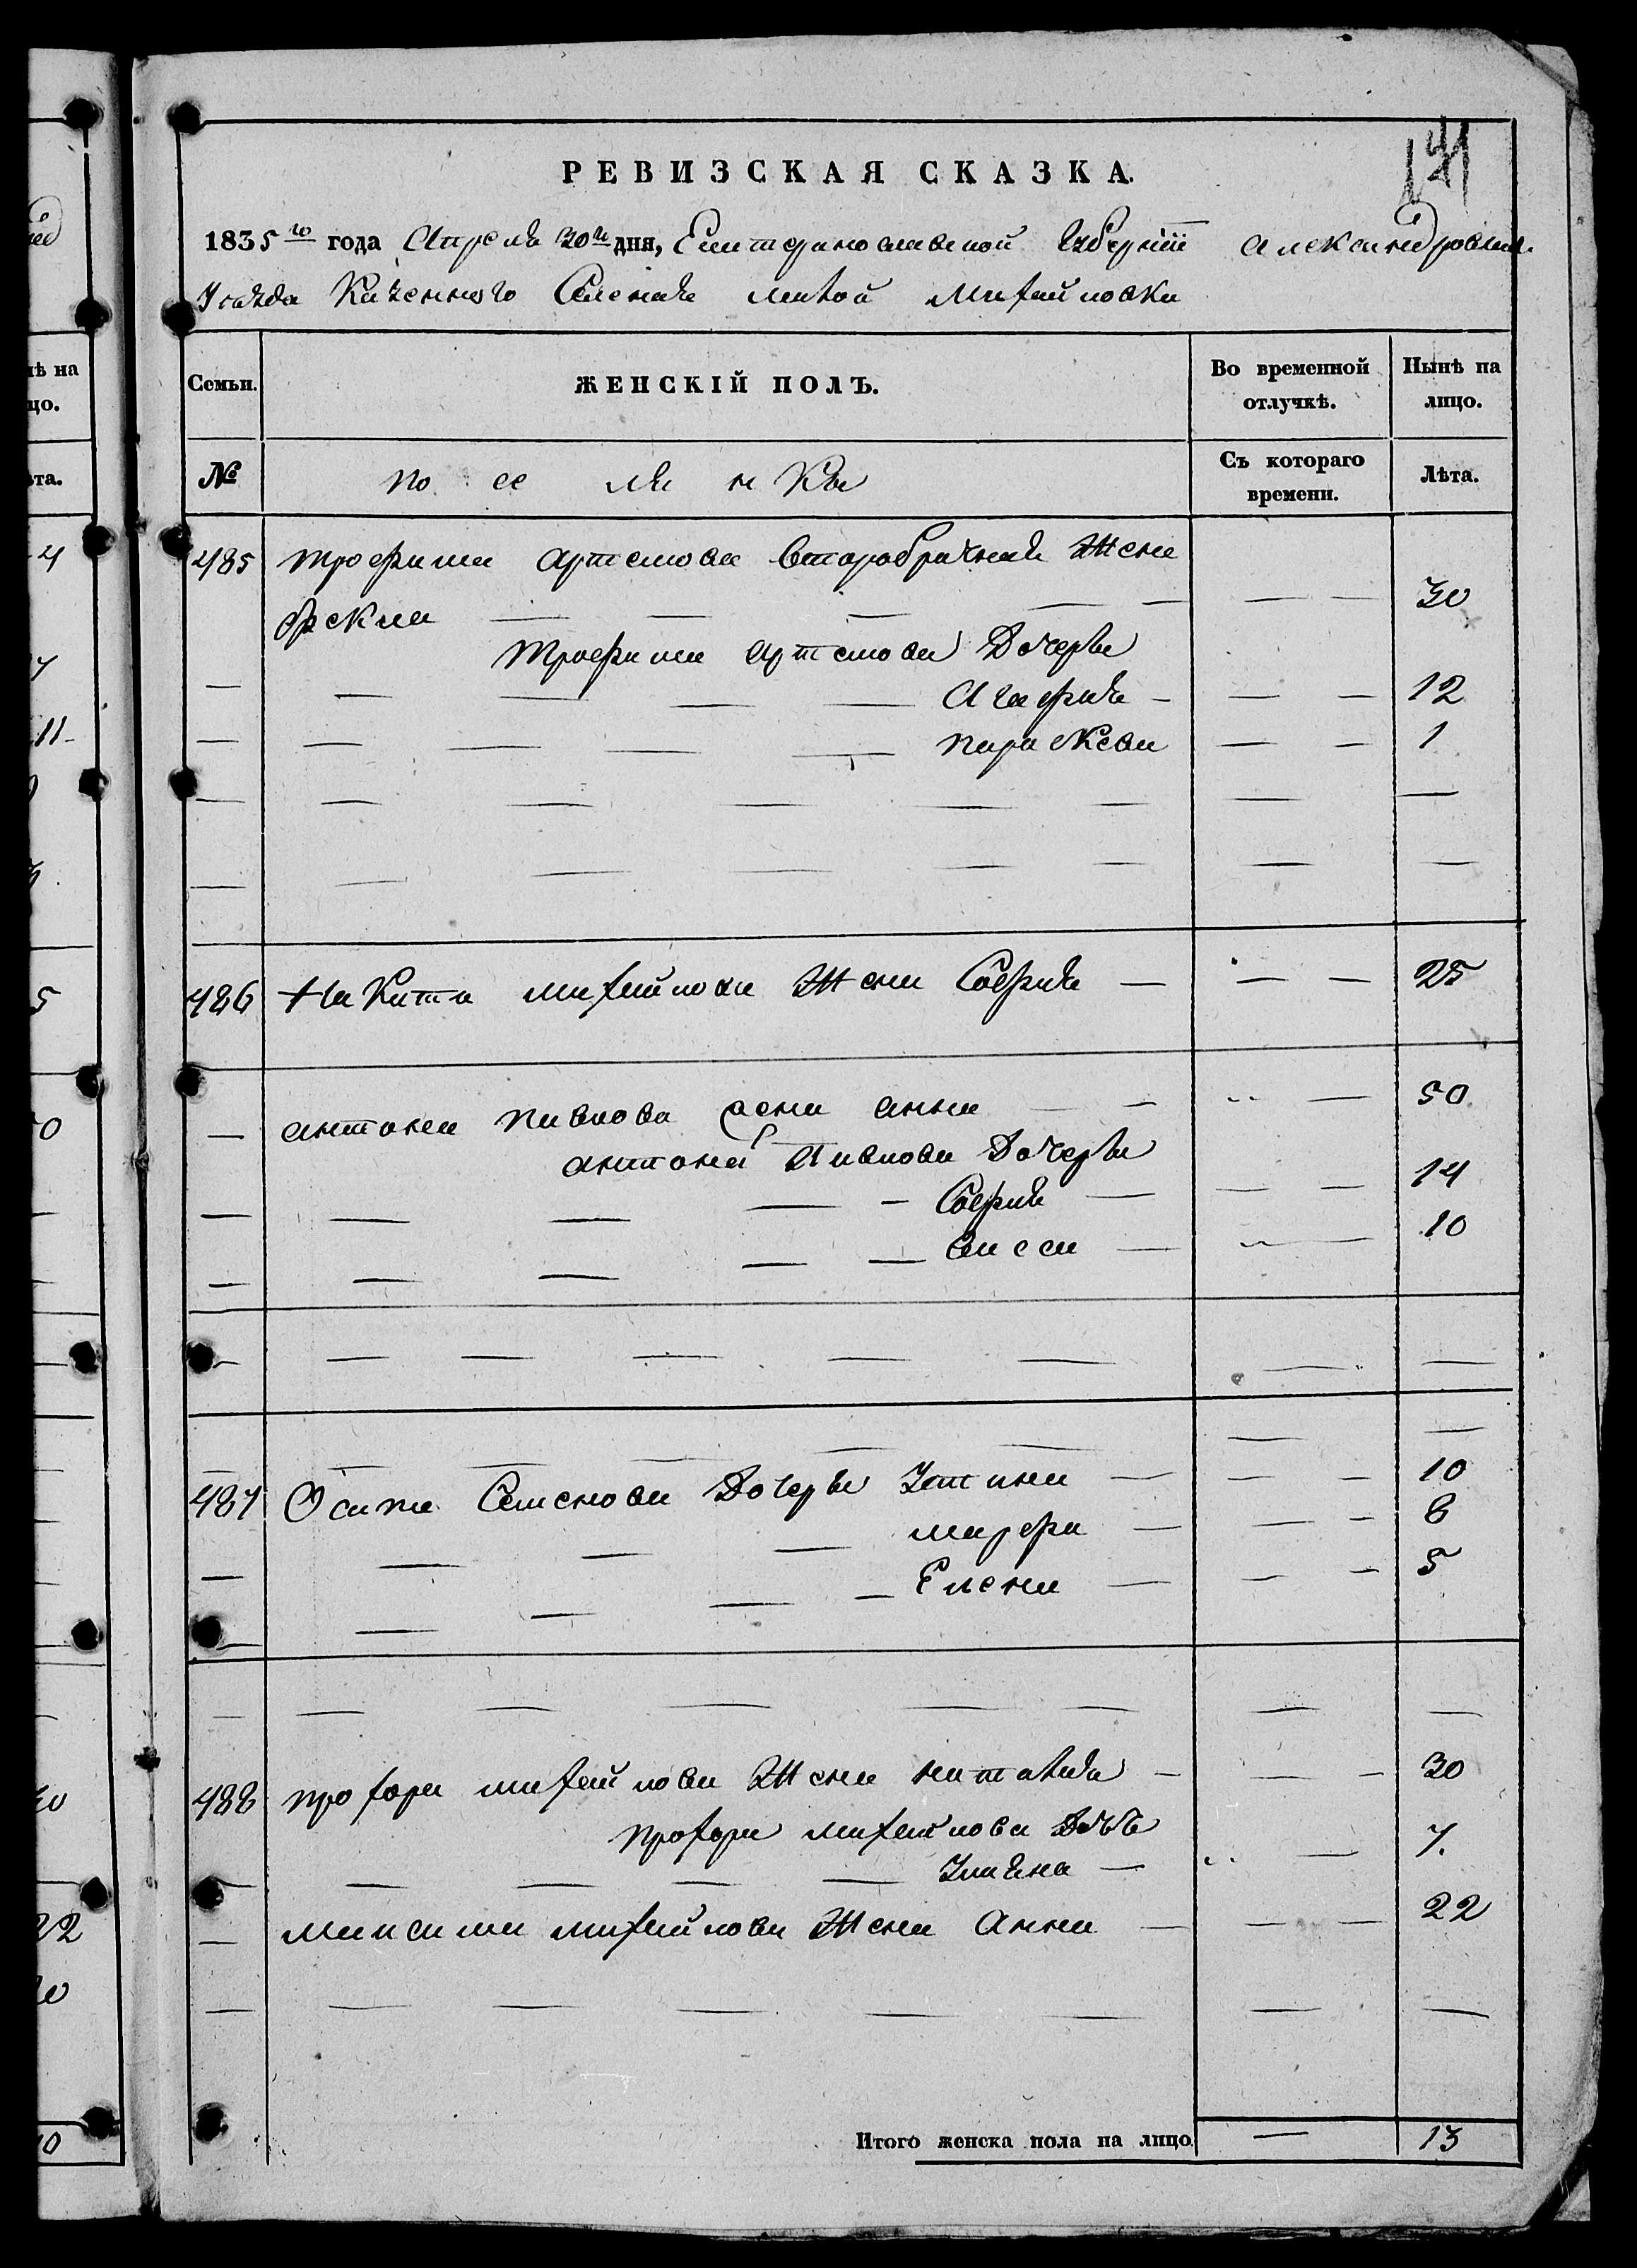 РЕВИЗСКАЯ СКАЗКА.
1835 го года Апреля 30 го дня, Екатеринославской Губернiи Александровска.
Уезда Казенного Селенiя малой Михайловки
Семьи. ЖЕНСКІЙ ПОЛЪ. Во временной отлучкѣ. Нынѣ на лицо.
№ поселянки Съ котораго времени. Лѣта.
485 трофима артемова второбрачная Жена
фекла — — — — — — — 30
трофима артемова Дочеры
— — — — — Агафия — — — 12
— — — — — параскева — — 1
486 Никита михайлова Жена София — — — 25
— антона павлова жена анна — — — 50
антона павлова Дочеры
— — — — — София — — — 14
— — — — — васса — — 10
487 Осипа Семенова Дочеры Устина — — — 10
— — — — марфа — — — 6
— — — — Елена — — — 5
488 прохора михайлова Жена наталия — — — 30
прохора михайлова Дочь
— — — — — Улияна — — 7.
— максима михайлова Жена Анна — — — 22
Итого женска пола на лицо — 13
ѣ на
цо.
ѣта.
4
7
11
5
0
22
10